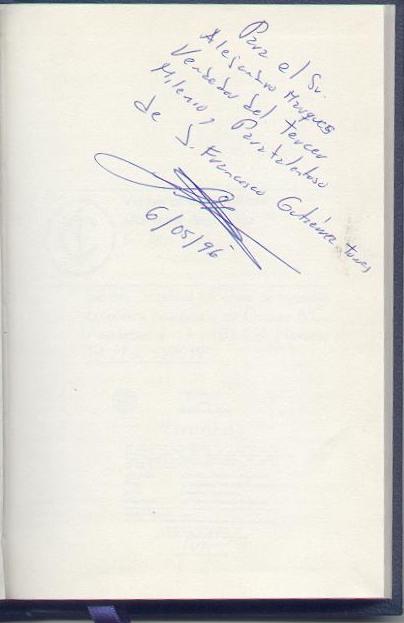 Para el Sr.
Alejandro Marques
Vendedor del tercer
Milenio, Para
de J. Francisco Gutiérrez
6/05/96